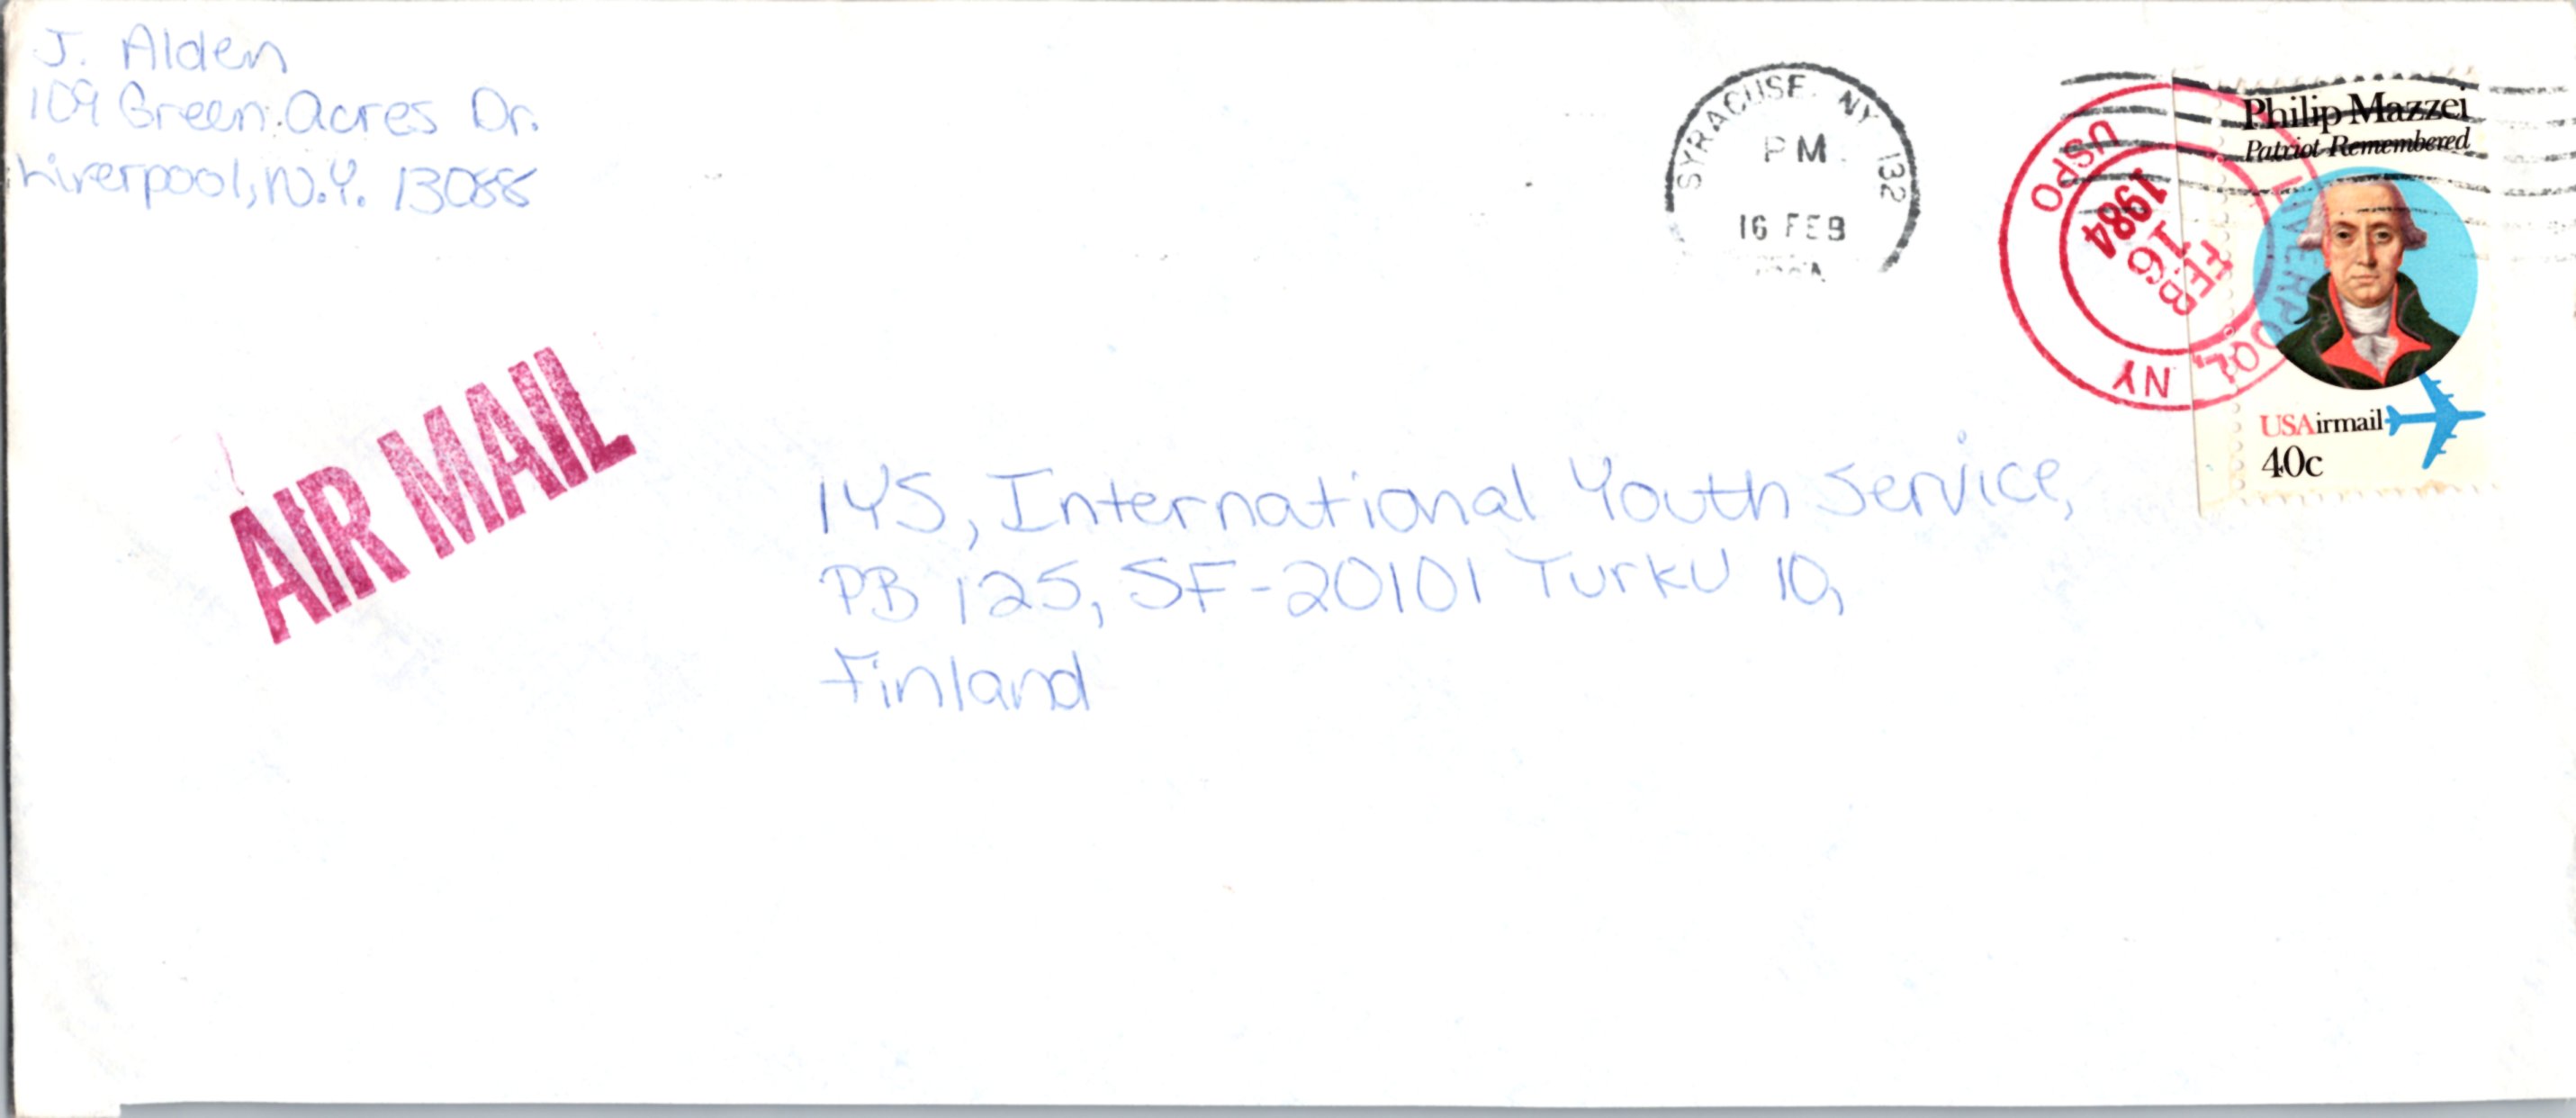 J. Alden
109 Green Acres Dr.
Liverpool, N.Y. 13088
SYRACUSE NY 132
PM
16 FEB
USPO
LIVERPOOL, NY
FEB
16
1984
Philip Mazzei
Patriot Remembered
USAirmail
40c
AIR MAIL
IYS, International Youth Service,
PB 125, SF-20101 Turku 10,
Finland